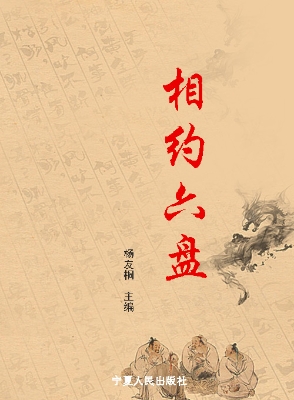 相约六盘
杨友桐 主编
宁夏人民出版社